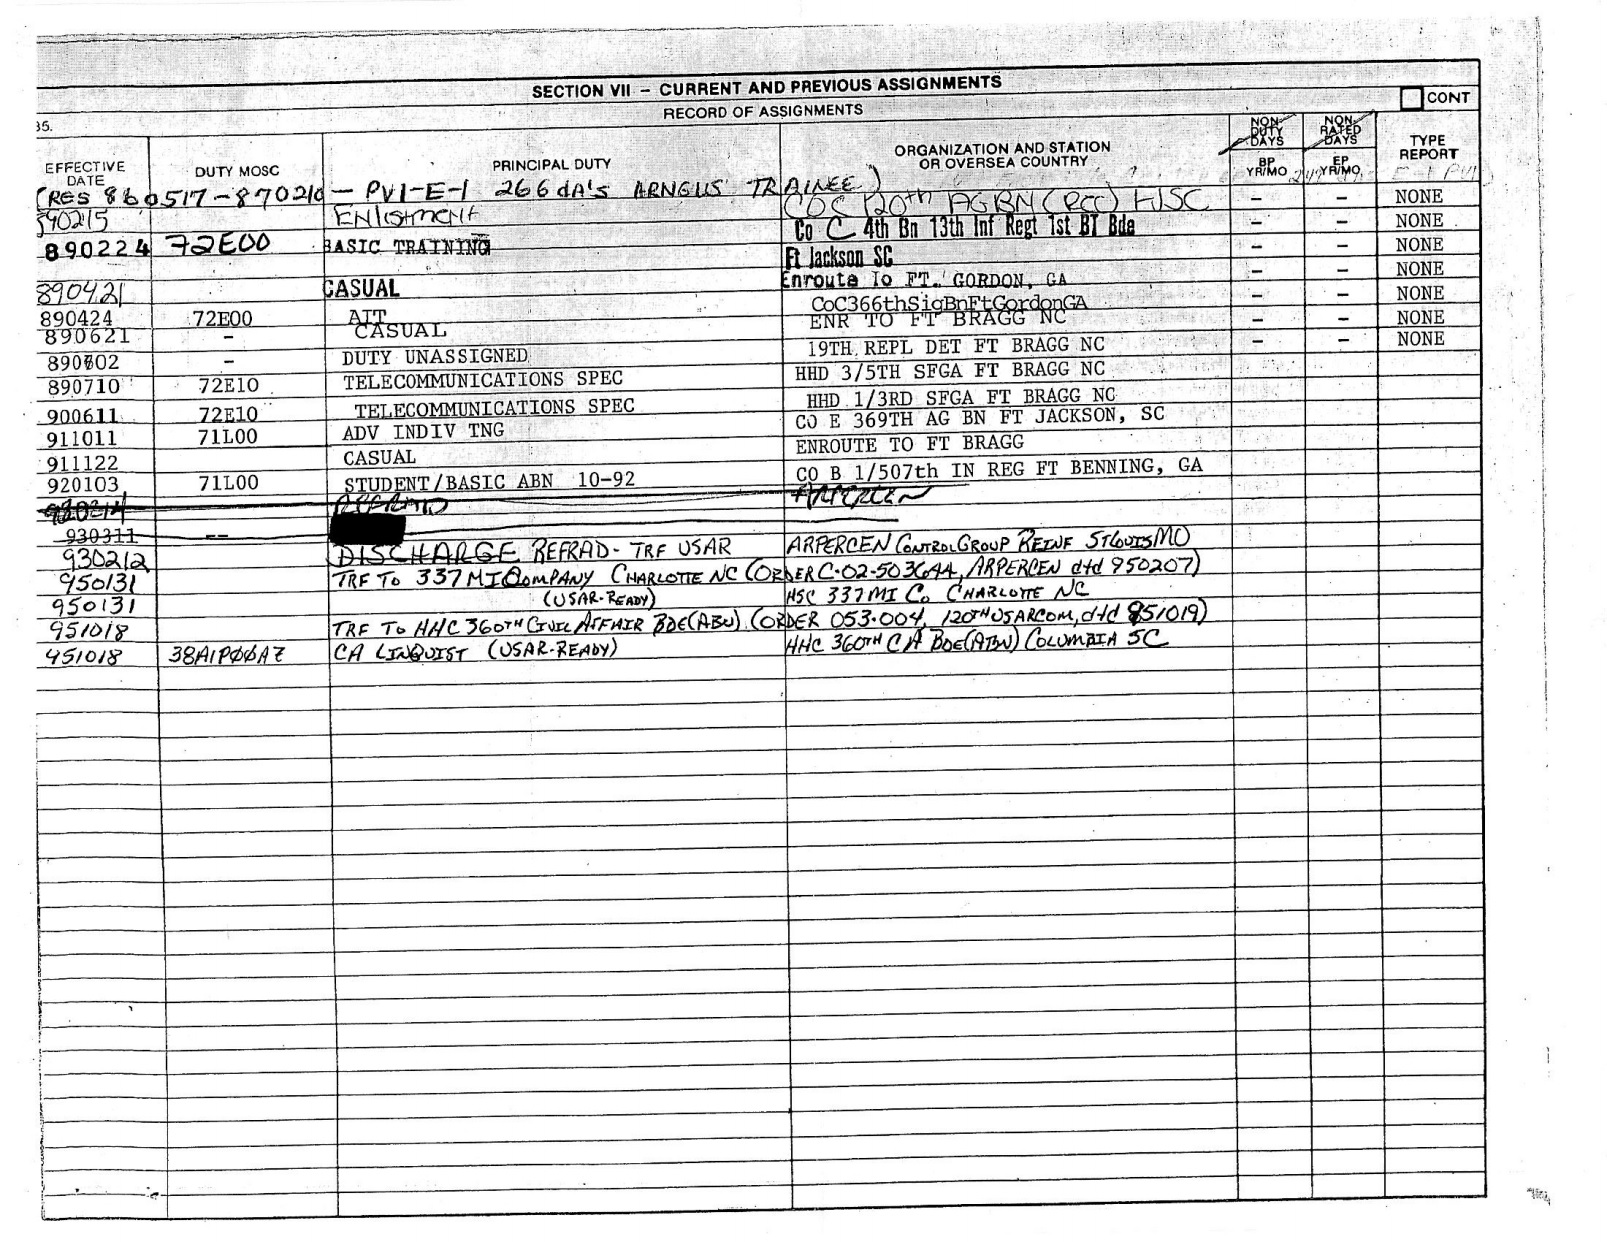 SECTION VII – CURRENT AND PREVIOUS ASSIGNMENTS
RECORD OF ASSIGNMENTS
CONT
35.
EFFECTIVE DATE DUTY MOSC PRINCIPAL DUTY ORGANIZATION AND STATION OR OVERSEA COUNTRY NON-DUTY DAYS NON-RATED DAYS TYPE REPORT
BP YR/MO EP YR/MO
(RES 860517-870210 - PV1-E-1 266 dA's ARNGUS TRAINEE)
890215 Enlistment 120th AG BN (REC) FJSC – – NONE
890224 72E00 BASIC TRAINING Co C 4th Bn 13th Inf Regt 1st BT Bde – – NONE
Ft Jackson SC – – NONE
890421 CASUAL Enroute To FT. GORDON, GA – – NONE
890424 72E00 AIT CoC366thSigBnFtGordonGA – – NONE
890621 – CASUAL ENR TO FT BRAGG NC – – NONE
890702 – DUTY UNASSIGNED 19TH REPL DET FT BRAGG NC – – NONE
890710 72E10 TELECOMMUNICATIONS SPEC HHD 3/5TH SFGA FT BRAGG NC
900611 72E10 TELECOMMUNICATIONS SPEC HHD 1/3RD SFGA FT BRAGG NC
911011 71L00 ADV INDIV TNG CO E 369TH AG BN FT JACKSON, SC
911122 CASUAL ENROUTE TO FT BRAGG
920103 71L00 STUDENT/BASIC ABN 10-92 CO B 1/507th IN REG FT BENNING, GA
REFRAD ARPERCEN
930311 --
930212 DISCHARGE REFRAD- TRF USAR ARPERCEN CONTROL GROUP REINF ST LOUIS MO
950131 TRF TO 337 MI COMPANY CHARLOTTE NC (ORDER C-02-503644, ARPERCEN dtd 950207)
950131 (USAR-READY) HSC 337 MI Co CHARLOTTE NC
951018 TRF TO HHC 360TH CIVIL AFFAIR BDE(ABN) (ORDER 053-004, 120TH USARCOM, dtd 951019)
951018 38A1P00AZ CA LINQUIST (USAR-READY) HHC 360TH CA BDE(ABN) COLUMBIA SC